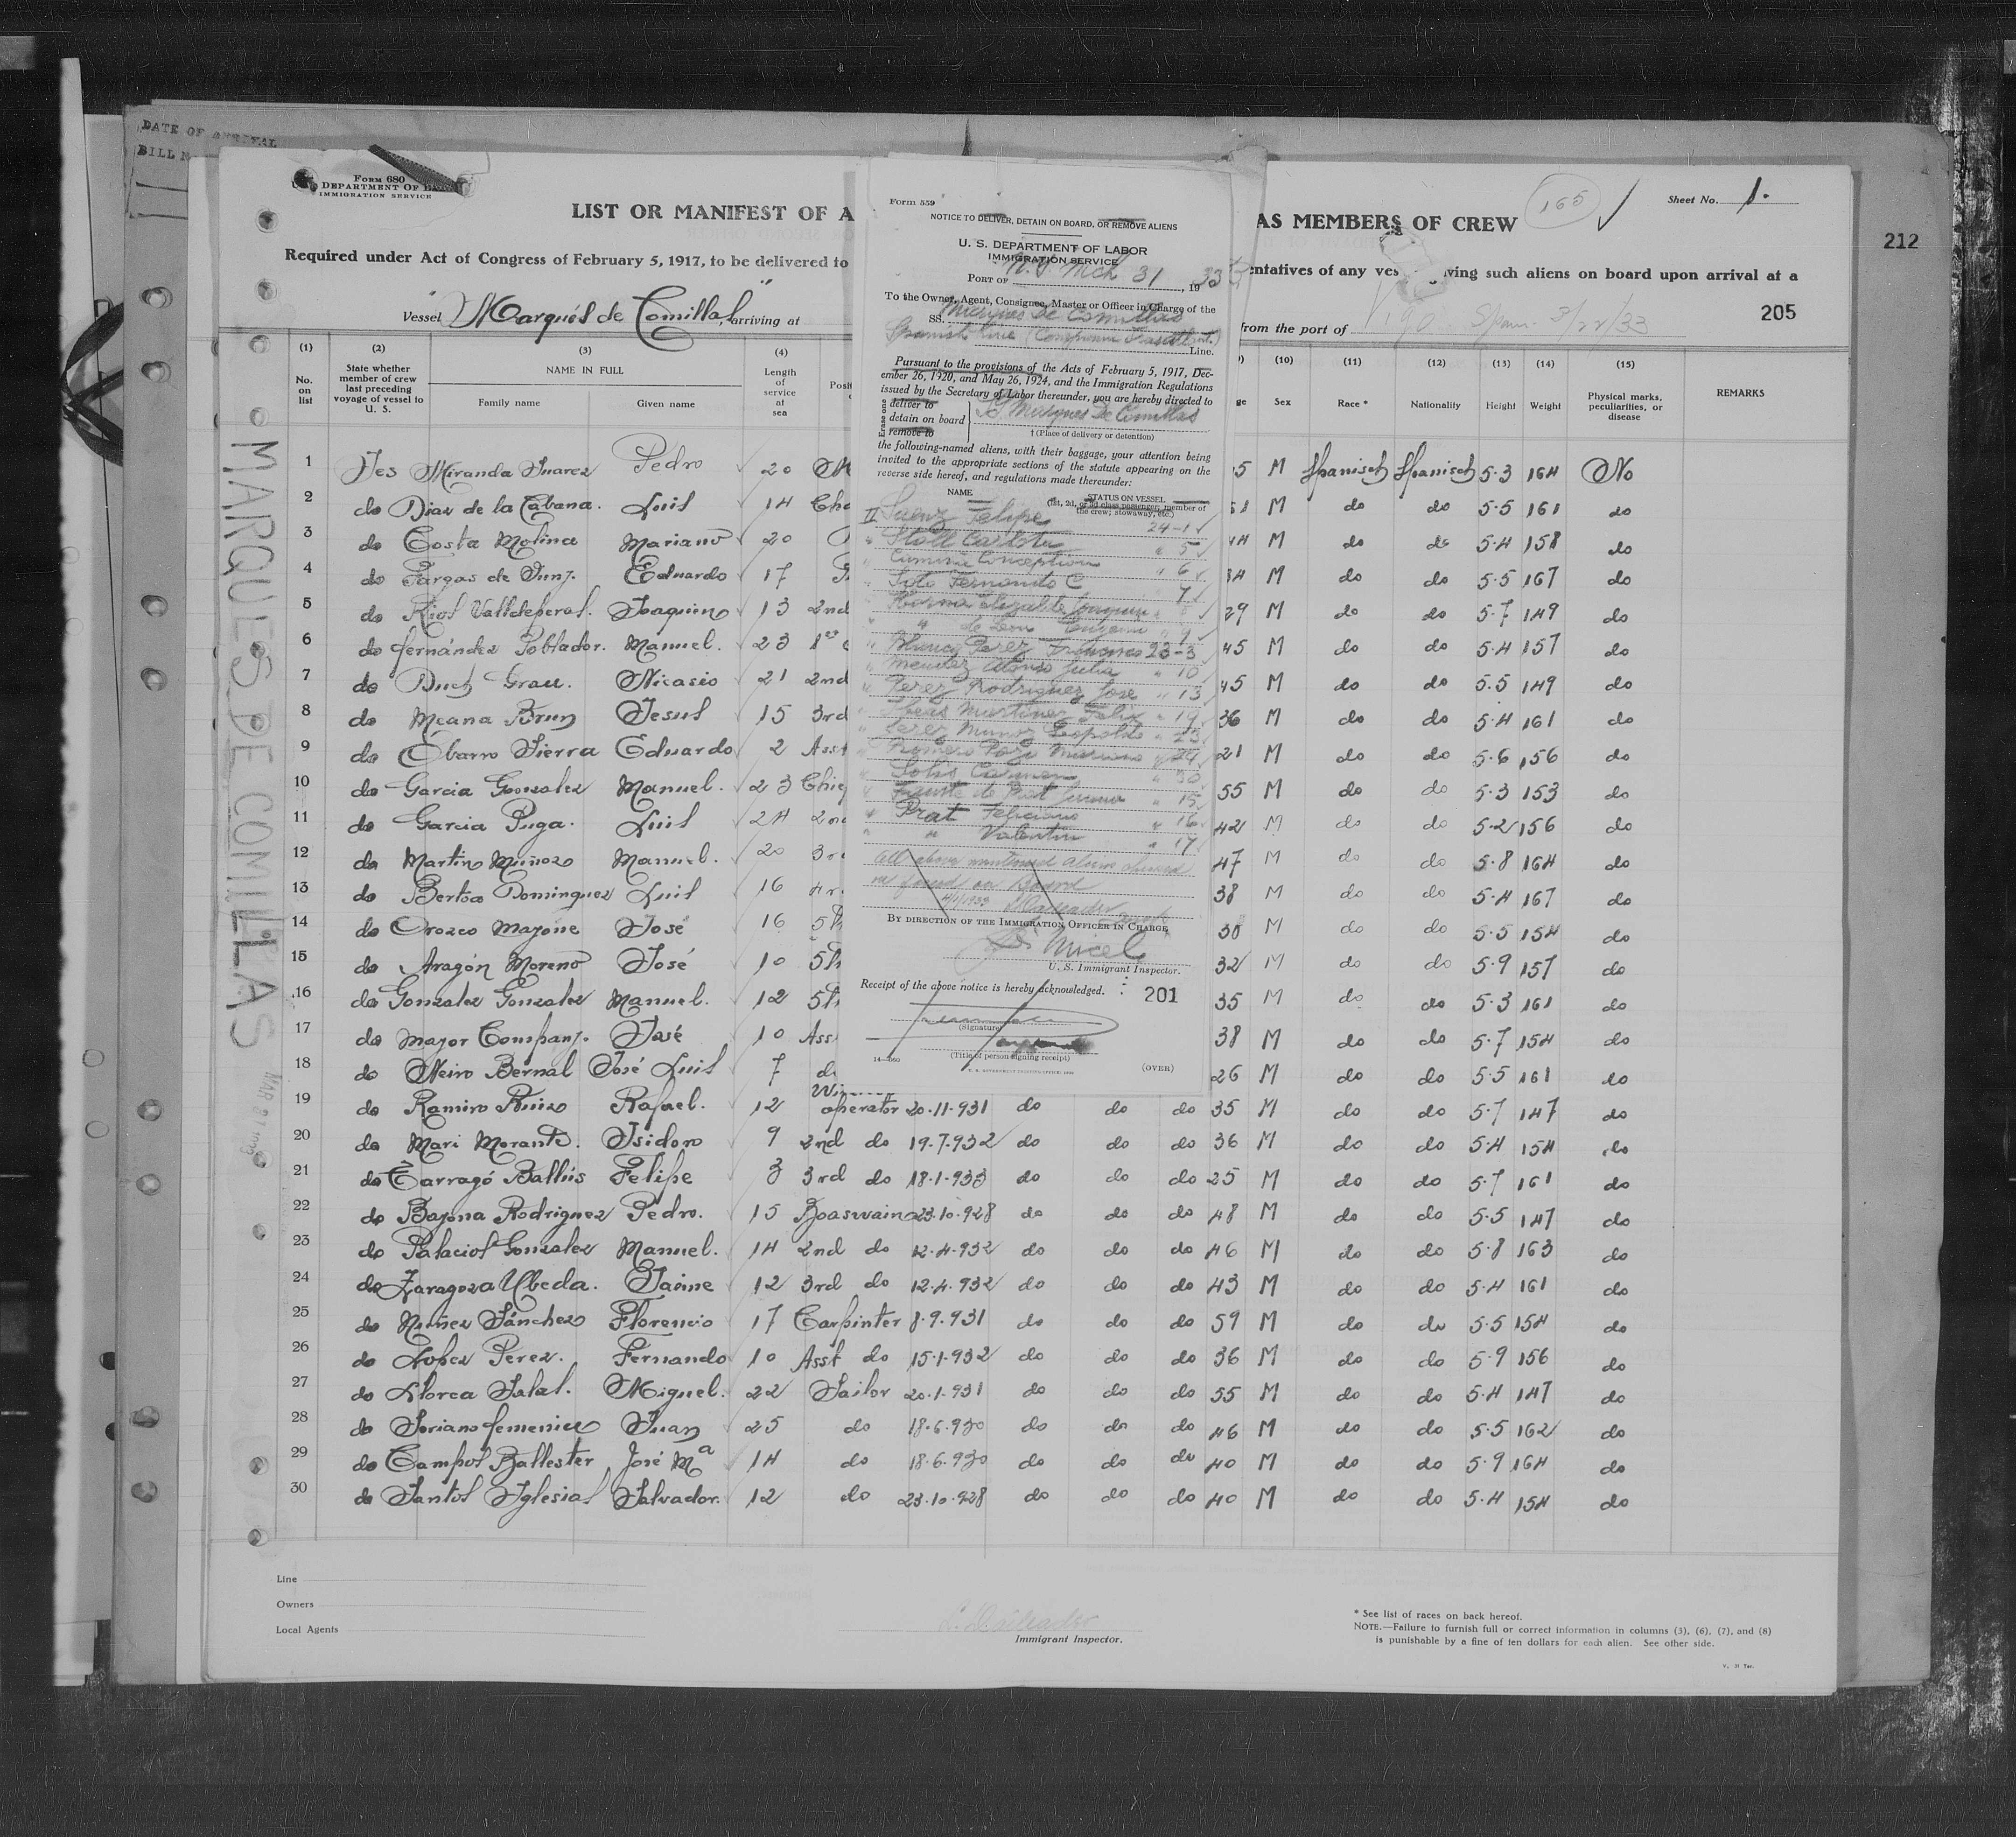 DATE OF ARRIVAL
BILL N
FORM 680
DEPARTMENT OF
IMMIGRATION SERVICE
LIST OR MANIFEST OF A
AS MEMBERS OF CREW
165
Sheet No. 1.
212
Required under Act of Congress of February 5, 1917, to be delivered to
entatives of any ves ving such aliens on board upon arrival at a
Vessel "Marqués de Comillas", arriving at
from the port of Vigo Spain 3/22/33
205
MARQUES DE COMILLAS
(1) (2) (3) (4)
(10) (11) (12) (13) (14) (15)
No. on list
State whether member of crew last preceding voyage of vessel to U. S.
NAME IN FULL
Family name Given name
Length of service at sea
Posit
ge Sex Race * Nationality Height Weight
Physical marks, peculiarities, or disease
REMARKS
1 Yes Miranda Suarez Pedro 20 5 M Spanisch Spanisch 5.3 164 No
2 do Diaz de la Cabana. Luis 14 Che 51 M do do 5.5 161 do
3 do Costa Molina Mariano 20 44 M do do 5.4 158 do
4 do Fargas de Eduardo 17 34 M do do 5.5 167 do
5 do Joaquin 13 2nd 29 M do do 5.7 149 do
6 do fernández Poblador. Manuel. 23 1er 45 M do do 5.4 157 do
7 do Duch Grau. Nicasio 21 2nd 45 M do do 5.5 149 do
8 do Meana Brun Jesus 15 3rd 36 M do do 5.4 161 do
9 do Sierra Eduardo 2 Asst 21 M do do 5.6 156 do
10 do Garcia Gonzalez Manuel. 23 Chie 55 M do do 5.3 153 do
11 do Garcia Puga. Luis 24 2nd 42 M do do 5.2 156 do
12 do Martin Muñoz Manuel. 20 3r 47 M do do 5.8 164 do
13 do Bertoa Dominguez Luis 16 4r 38 M do do 5.4 167 do
14 do Orozco José 16 5th 38 M do do 5.5 154 do
15 do Aragón Moreno José 10 5th 32 M do do 5.9 157 do
16 do Gonzalez Gonzalez Manuel. 12 5th 35 M do do 5.3 161 do
17 do Mayor Company. José 10 Ass 38 M do do 5.7 154 do
18 do Neiro Bernal José Luis 7 d 26 M do do 5.5 161 do
19 do Ramiro Ruiz Rafael. 12 operator 20.11.931 do do do 35 M do do 5.7 147 do
20 do Mari Morante. Isidoro 9 2nd do 19.7.932 do do do 36 M do do 5.4 154 do
21 do Tarragó Ballús Felipe 3 3rd do 18.1.933 do do do 25 M do do 5.7 161 do
22 do Bayona Rodriguez Pedro. 15 Boaswain 23.10.928 do do do 48 M do do 5.5 147 do
23 do Palacios Gonzalez Manuel. 14 2nd do 12.4.932 do do do 46 M do do 5.8 163 do
24 do Zaragoza Ubeda. Jaime 12 3rd do 12.4.932 do do do 43 M do do 5.4 161 do
25 do Nuñez Sánchez Florencio 17 Carpinter 8.9.931 do do do 59 M do do 5.5 154 do
26 do Lopez Perez. Fernando 10 Asst do 15.1.932 do do do 36 M do do 5.9 156 do
27 do Llorca Salas. Miguel. 22 Sailor 20.1.931 do do do 55 M do do 5.4 147 do
28 do Soriano femenia Juan 25 do 18.6.930 do do do 46 M do do 5.5 162 do
29 do Campos Ballester José Mª 14 do 18.6.930 do do do 40 M do do 5.9 164 do
30 do Santos Iglesias Salvador. 12 do 23.10.928 do do do 40 M do do 5.4 154 do
Form 559
NOTICE TO DELIVER, DETAIN ON BOARD, OR REMOVE ALIENS
U. S. DEPARTMENT OF LABOR
IMMIGRATION SERVICE
PORT OF N.Y. Mch 31, 1933
To the Owner, Agent, Consignee, Master or Officer in Charge of the
SS. Marques De Comillas
Spanish Line Line.
Pursuant to the provisions of the Acts of February 5, 1917, Dec-
ember 26, 1920, and May 26, 1924, and the Immigration Regulations
issued by the Secretary of Labor thereunder, you are hereby directed to
Erase one
deliver to
detain on board SS Marques De Comillas
remove to
† (Place of delivery or detention)
the following-named aliens, with their baggage, your attention being
invited to the appropriate sections of the statute appearing on the
reverse side hereof, and regulations made thereunder:
NAME
STATUS ON VESSEL
(1st, 2d, or 3d class passenger, member of
the crew; stowaway, etc.)
II Saenz Felipe 24-1
" Stoll Carlota " 5
" Concepcion " 6
" Soto Fernando C " 7
" Joaquin " 8
" " de Leon Eugenia " 9
" Perez Francisco 23-3
" Mendez Alonso Julia " 10
" Perez Rodriguez Jose " 13
" Martinez Felix " 19
" Perez Munoz Leopoldo " 23
" Romero Mariano " 24
" Solis Carmen " 30
" de Prat " 15
" Prat Feliciano " 16
" " Valentin " 17
All above mentioned aliens
found on board
4/1/1933
BY DIRECTION OF THE IMMIGRATION OFFICER IN CHARGE
U. S. Immigrant Inspector.
Receipt of the above notice is hereby acknowledged.
201
(Signature)
(Title of person signing receipt)
(OVER)
Line
Owners
Local Agents
Immigrant Inspector.
* See list of races on back hereof.
NOTE.—Failure to furnish full or correct information in columns (3), (6), (7), and (8)
is punishable by a fine of ten dollars for each alien. See other side.